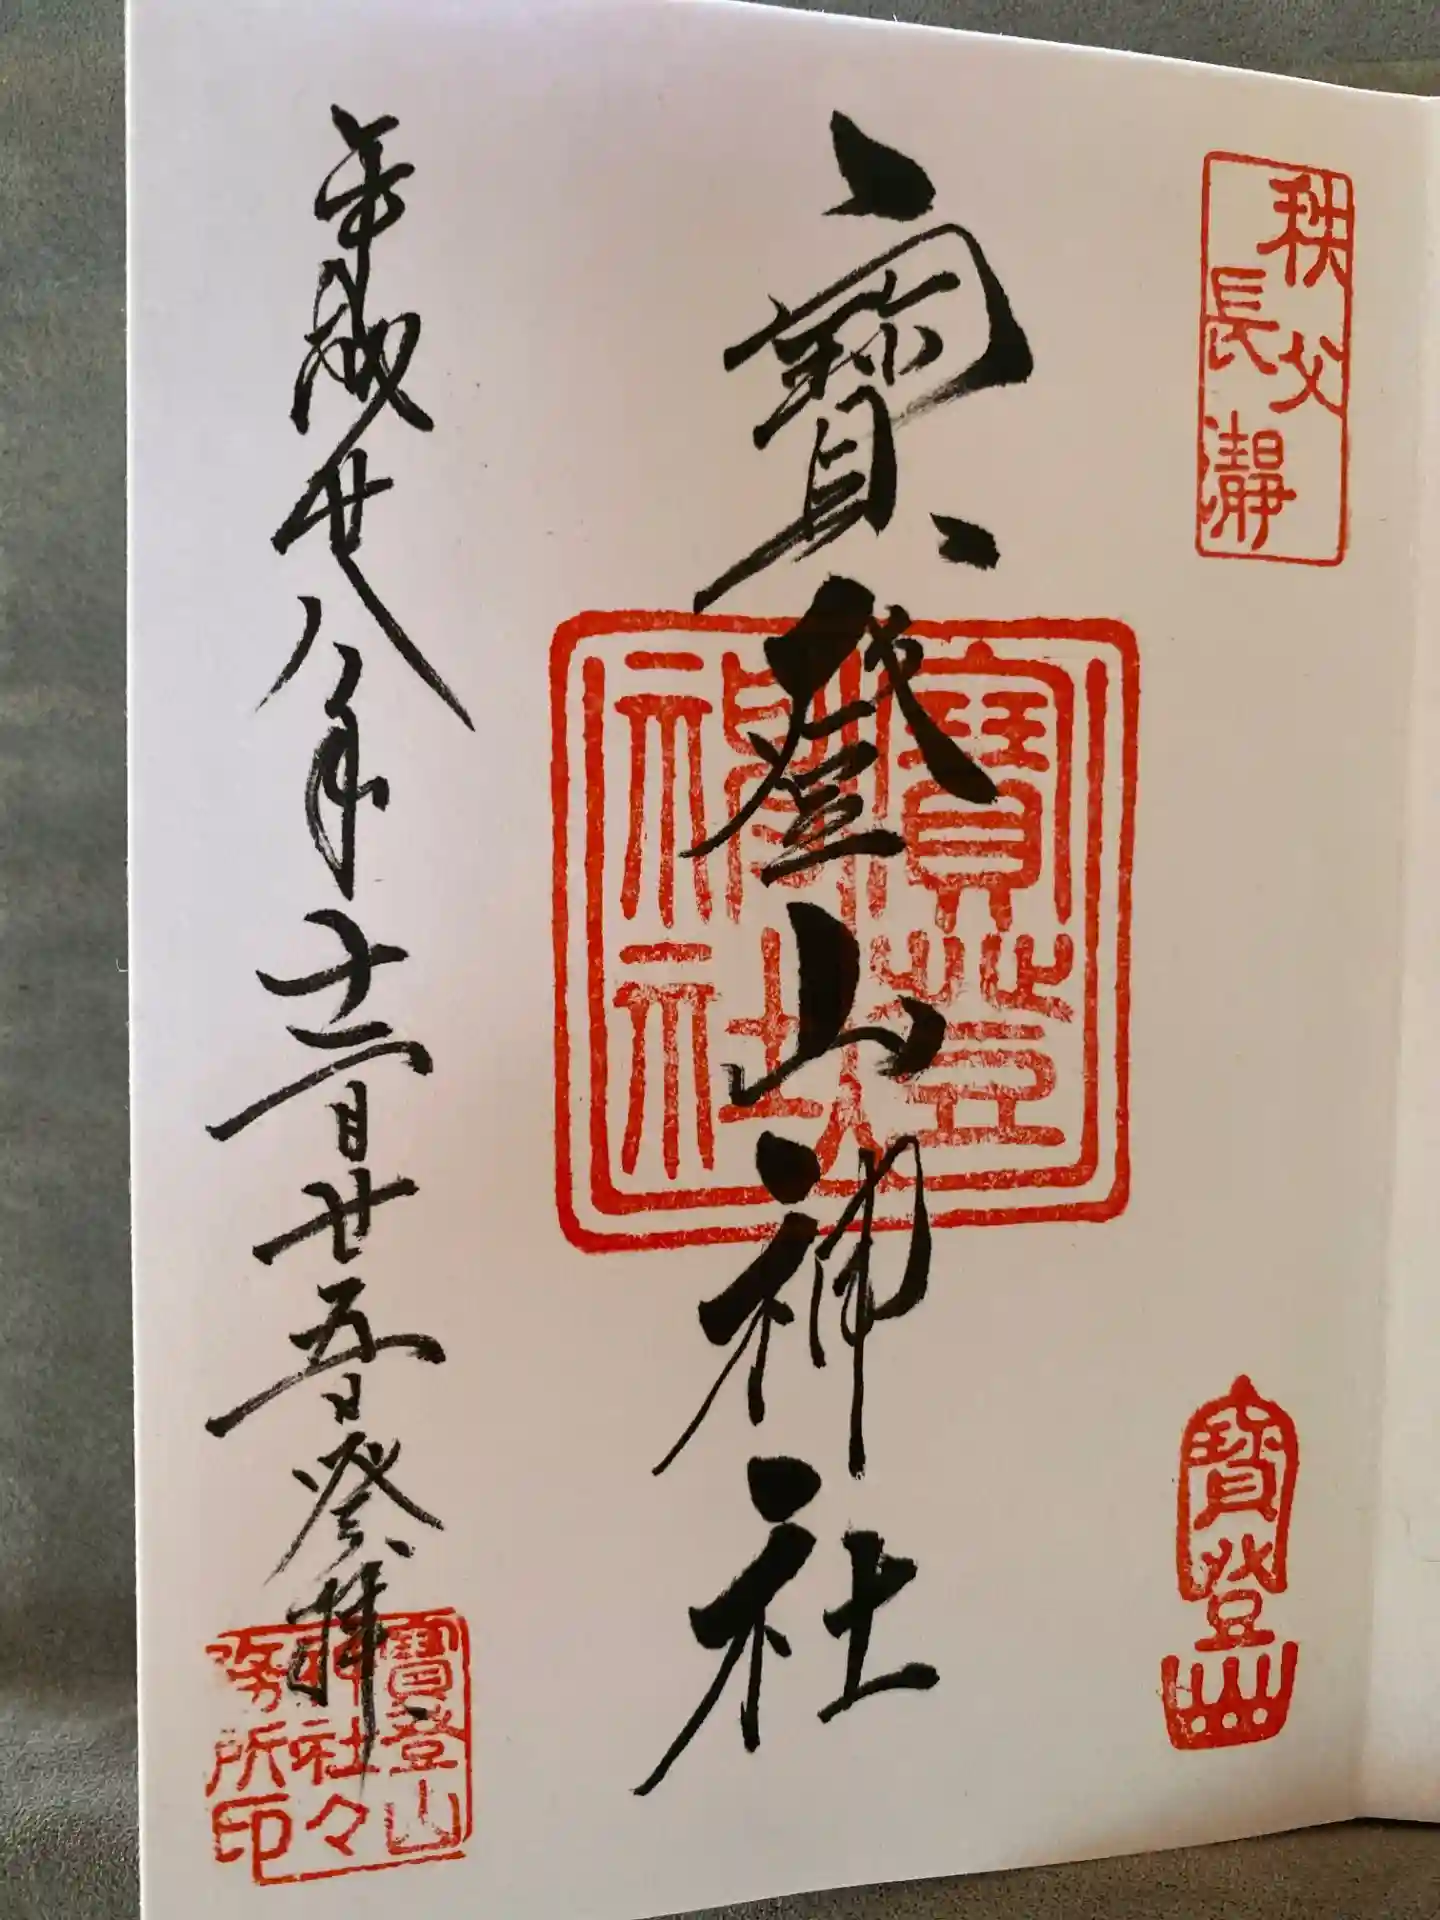 秩父
長瀞
寳登山
寳登山神社
寳登
神社
平成廿八年十二月廿五日登拝
寳登山
神社々
務所印